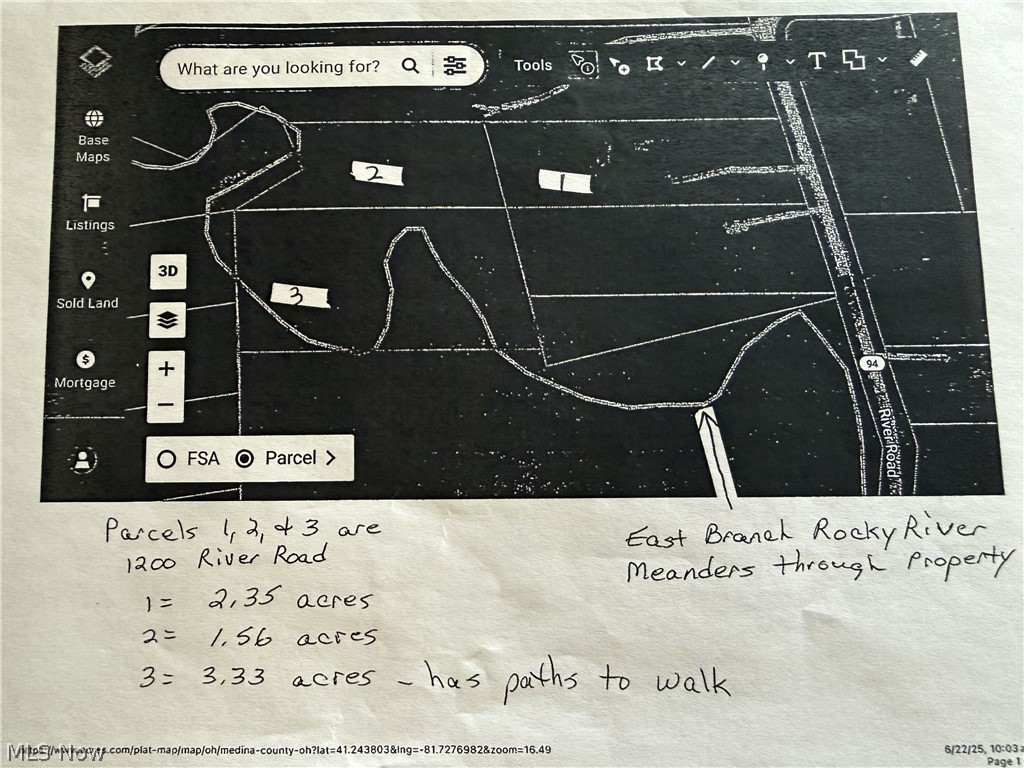 What are you looking for?
Tools
T
Base
Maps
2
1
Listings
3D
3
Sold Land
+
$
94
Mortgage
−
River Road
FSA Parcel >
Parcels 1, 2, & 3 are
1200 River Road
1= 2.35 acres
2= 1.56 acres
3= 3.33 acres - has paths to walk
East Branch Rocky River
Meanders through Property
.com/plat-map/map/oh/medina-county-oh?lat=41.243803&lng=-81.7276982&zoom=16.49
MLS Now
6/22/25, 10:03
Page 1